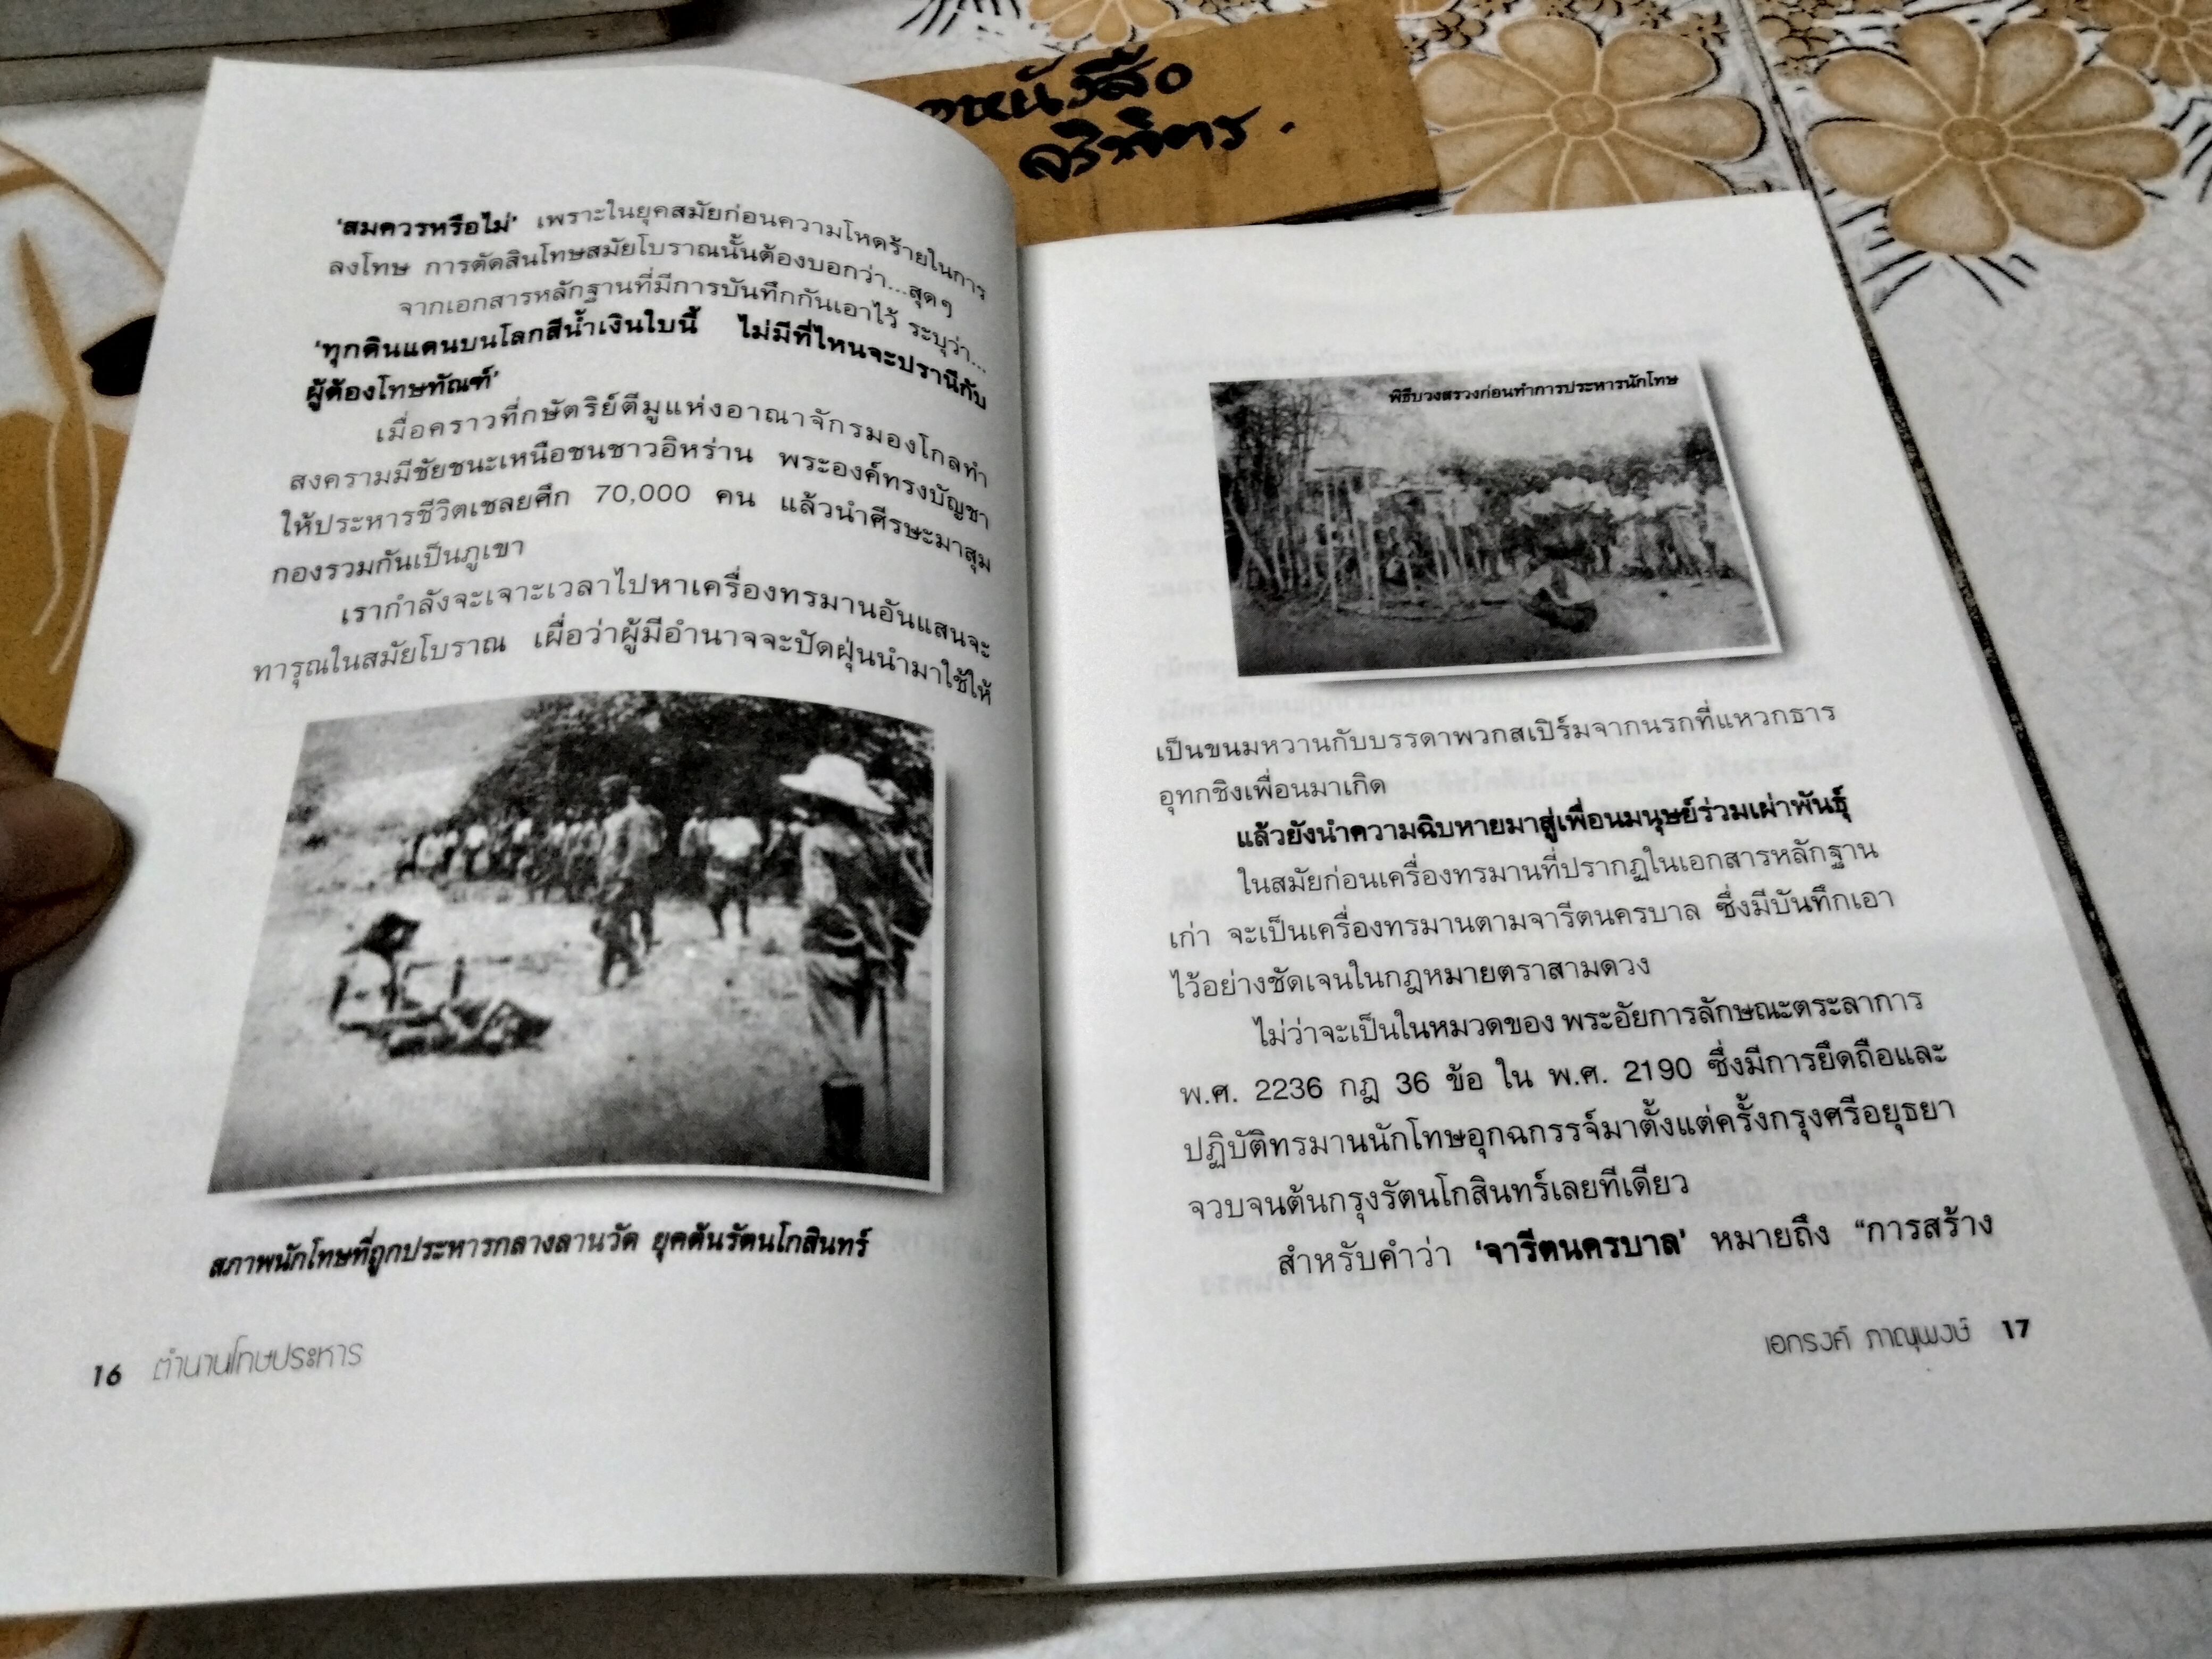 หนังสือ
จริพิตร.
'สมควรหรือไม่' เพราะในยุคสมัยก่อนความโหดร้ายในการ
ลงโทษ การตัดสินโทษสมัยโบราณนั้นต้องบอกว่า...สุดๆ
จากเอกสารหลักฐานที่มีการบันทึกกันเอาไว้ ระบุว่า...
'ทุกดินแดนบนโลกสีน้ำเงินใบนี้ ไม่มีที่ไหนจะปรานีกับ
ผู้ต้องโทษทัณฑ์'
เมื่อคราวที่กษัตริย์ตีมูแห่งอาณาจักรมองโกลทำ
สงครามมีชัยชนะเหนือชนชาวอิหร่าน พระองค์ทรงบัญชา
ให้ประหารชีวิตเชลยศึก 70,000 คน แล้วนำศีรษะมาสุม
กองรวมกันเป็นภูเขา
เรากำลังจะเจาะเวลาไปหาเครื่องทรมานอันแสนจะ
ทารุณในสมัยโบราณ เผื่อว่าผู้มีอำนาจจะปัดฝุ่นนำมาใช้ให้
สภาพนักโทษที่ถูกประหารกลางลานวัด ยุคต้นรัตนโกสินทร์
16 ตำนานโทษประหาร
พิธีบวงสรวงก่อนทำการประหารนักโทษ
เป็นขนมหวานกับบรรดาพวกสเปิร์มจากนรกที่แหวกธาร
อุทกชิงเพื่อนมาเกิด
แล้วยังนำความฉิบหายมาสู่เพื่อนมนุษย์ร่วมเผ่าพันธุ์
ในสมัยก่อนเครื่องทรมานที่ปรากฏในเอกสารหลักฐาน
เก่า จะเป็นเครื่องทรมานตามจารีตนครบาล ซึ่งมีบันทึกเอา
ไว้อย่างชัดเจนในกฎหมายตราสามดวง
ไม่ว่าจะเป็นในหมวดของ พระอัยการลักษณะตระลาการ
พ.ศ. 2236 กฎ 36 ข้อ ใน พ.ศ. 2190 ซึ่งมีการยึดถือและ
ปฏิบัติทรมานนักโทษอุกฉกรรจ์มาตั้งแต่ครั้งกรุงศรีอยุธยา
จวบจนต้นกรุงรัตนโกสินทร์เลยทีเดียว
สำหรับคำว่า 'จารีตนครบาล' หมายถึง "การสร้าง
เอกรงค์ ภาณุพงษ์ 17